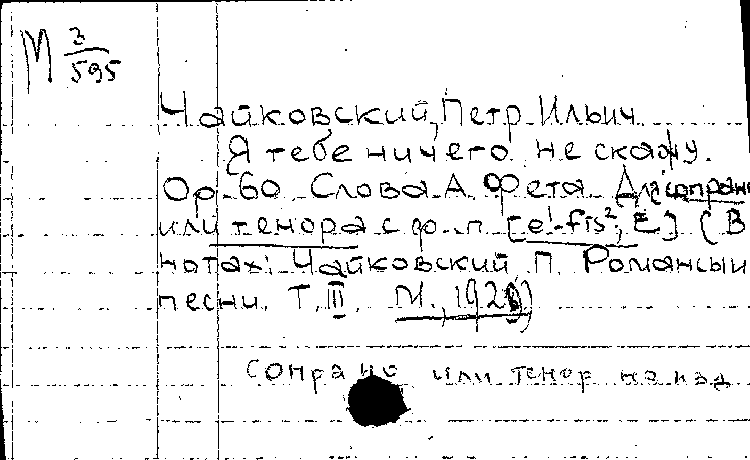 М 3/595
Чайковский, Петр Ильич
Я тебе ничего не скажу.
Op. 60 Слова А. Фета. Для сопрано
или тенора с ф.-п. [e¹-fis², E] (В
нотах: Чайковский П. Романсы и
песни. Т. III. М., 192
Сопрано или тенор на изд